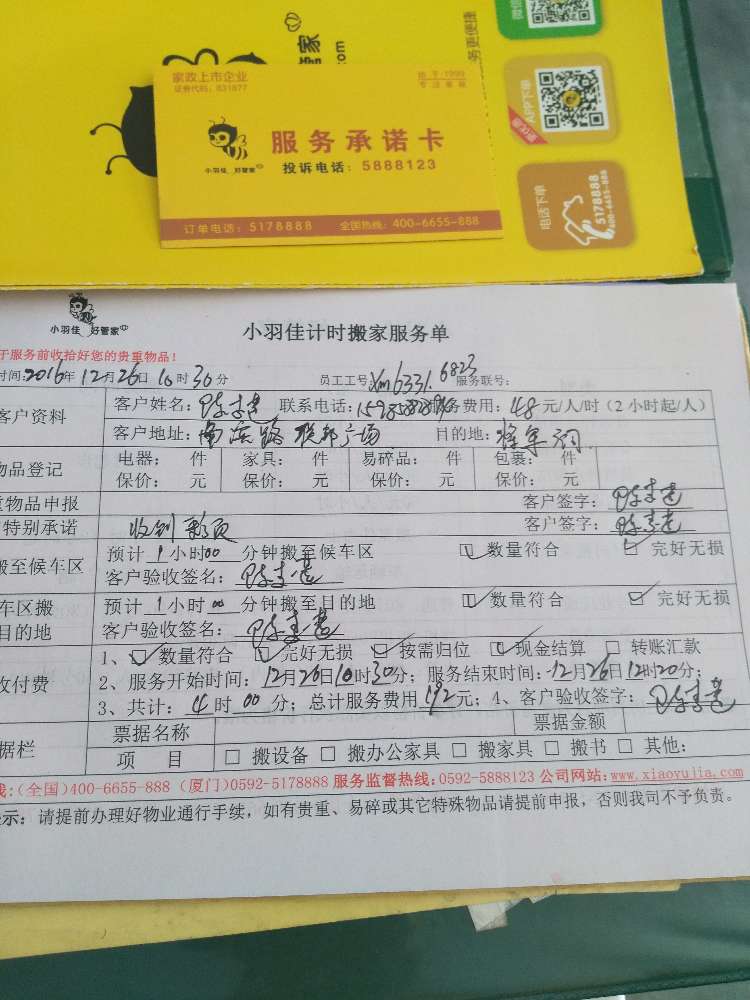 微信
务更便捷
APP下单
电话下单
5178888
400-6655-888
家
.com
家政上市企业
证券代码：831877
始于·1999
专注家政
服务承诺卡
小羽佳 好管家
投诉电话：5888123
订单电话：5178888 全国热线：400-6655-888
小羽佳 好管家
小羽佳计时搬家服务单
于服务前收拾好您的贵重物品！
时间:2016年12月26日10时30分 员工工号:Xm6331.6823 服务联号:
客户资料 客户姓名: 联系电话: 服务费用: 48元/人/时（2小时起/人）
客户地址: 联邦广场 目的地: 将军祠
物品登记 电器: 件 家具: 件 易碎品: 件 包裹: 件
保价: 元 保价: 元 保价: 元 保价: 元
重物品申报 客户签字:
特别承诺 收到 客户签字:
搬至候车区 预计1小时00分钟搬至候车区 ☑ 数量符合 ☑ 完好无损
客户验收签名:
车区搬 预计1小时00分钟搬至目的地 ☑ 数量符合 ☑ 完好无损
目的地 客户验收签名:
收付费 1、☑ 数量符合 ☑ 完好无损 ☑ 按需归位 ☑ 现金结算 □ 转账汇款
2、服务开始时间: 12月26日10时30分; 服务结束时间: 12月26日12时20分;
3、共计: 4时00分; 总计服务费用192元; 4、客户验收签字:
据栏 票据名称 票据金额
项 目 □ 搬设备 □ 搬办公家具 □ 搬家具 □ 搬书 □ 其他:
线:(全国)400-6655-888 (厦门)0592-5178888 服务监督热线:0592-5888123 公司网站:www.xiaoyujia.com
示: 请提前办理好物业通行手续，如有贵重、易碎或其它特殊物品请提前申报，否则我司不予负责。